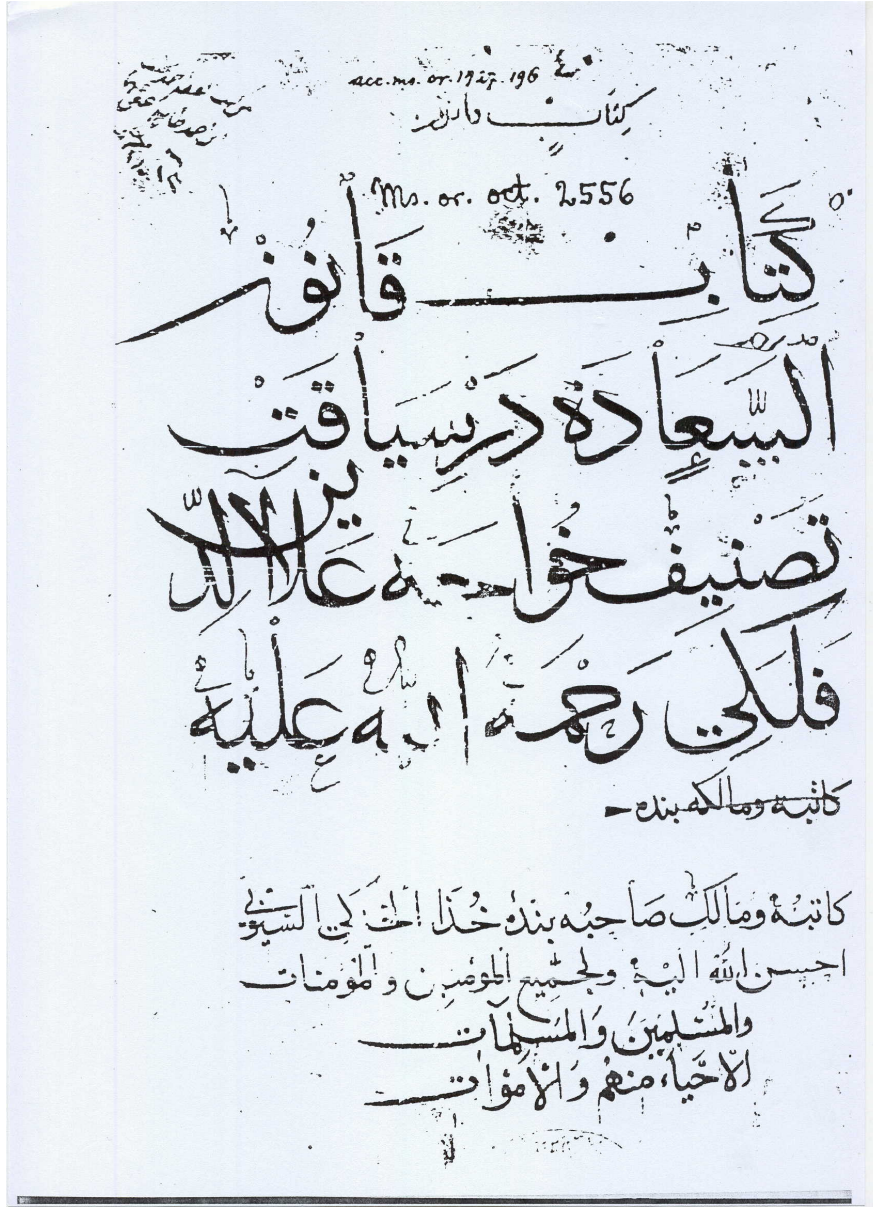 acc.ms.or.1927.196
كتاب
Ms. or. oct. 2556
كِتَابْ قانُونْ
السَّعادَة دَرْ سِيَاقَتْ
تَصْنيف خُواجَه عَلا الدّين
فَلَكي رَحْمَة الله عَلَيْه
كاتبه ومالكه بنده
كاتبهُ ومَالك صَاحبهُ بندهٔ خُدَا السيوفي
احسن الله اليه ولجميع المؤمنين والمؤمنات
والمُسْلِمينَ وَالمسلمات
الاحْياء منهم وَالاموات